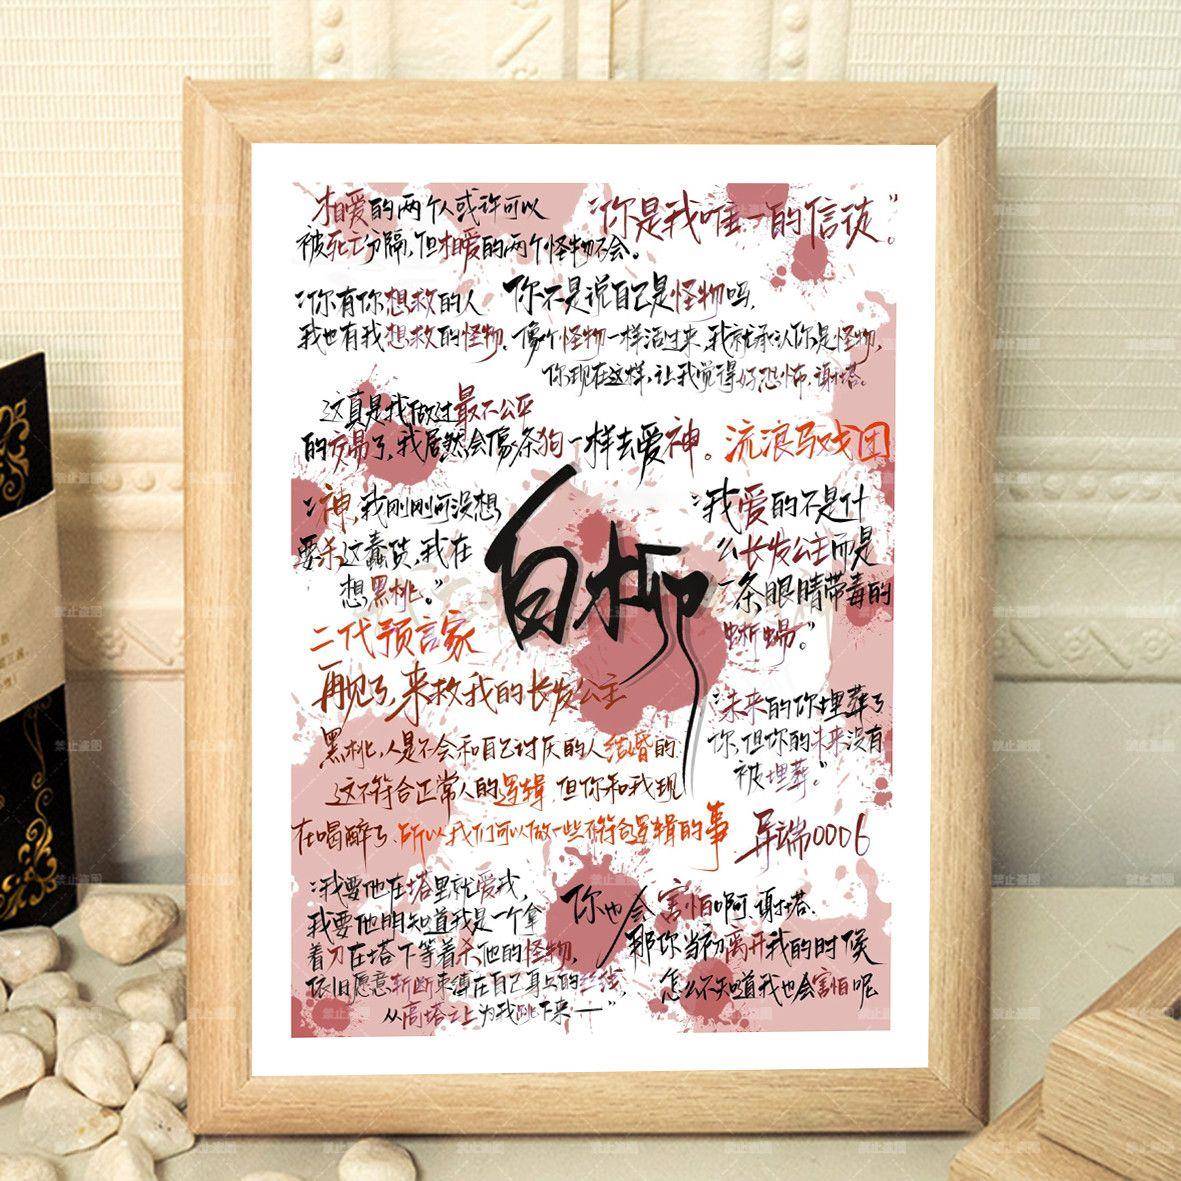 相爱的两个人或许可以
被死亡分隔,但相爱的两个怪物不会。
“你是我唯一的信徒。”
“你有你想救的人
我也有我想救的怪物。
你不是说自己是怪物吗,
像个怪物一样活过来,我就承认你是怪物,
你现在这样,让我觉得好恐怖,谢塔。
这真是我做过最不公平
的交易了,我居然会像条狗一样去爱神。
流浪马戏团
“神,我刚刚可没想
要杀这蠢货,我在
想黑桃。”
白柳
“我爱的不是什
么长发公主而是
一条眼睛带毒的
蜥蜴。”
二代预言家
再见了,来救我的长发公主
黑桃,人是不会和自己讨厌的人结婚的
这不符合正常人的逻辑,但你和我现
在喝醉了,所以我们可以做一些不符合逻辑的事
“未来的你埋葬了
你,但你的未来没有
被埋葬。”
异端0006
“我要他在塔里就爱我,
我要他明知道我是一个拿
着刀在塔下等着杀他的怪物,
依旧愿意斩断束缚在自己身上的丝线,
从高塔之上为我跳下来——”
你也会害怕啊,谢塔,
那你当初离开我的时候
怎么不知道我也会害怕呢
禁止盗图